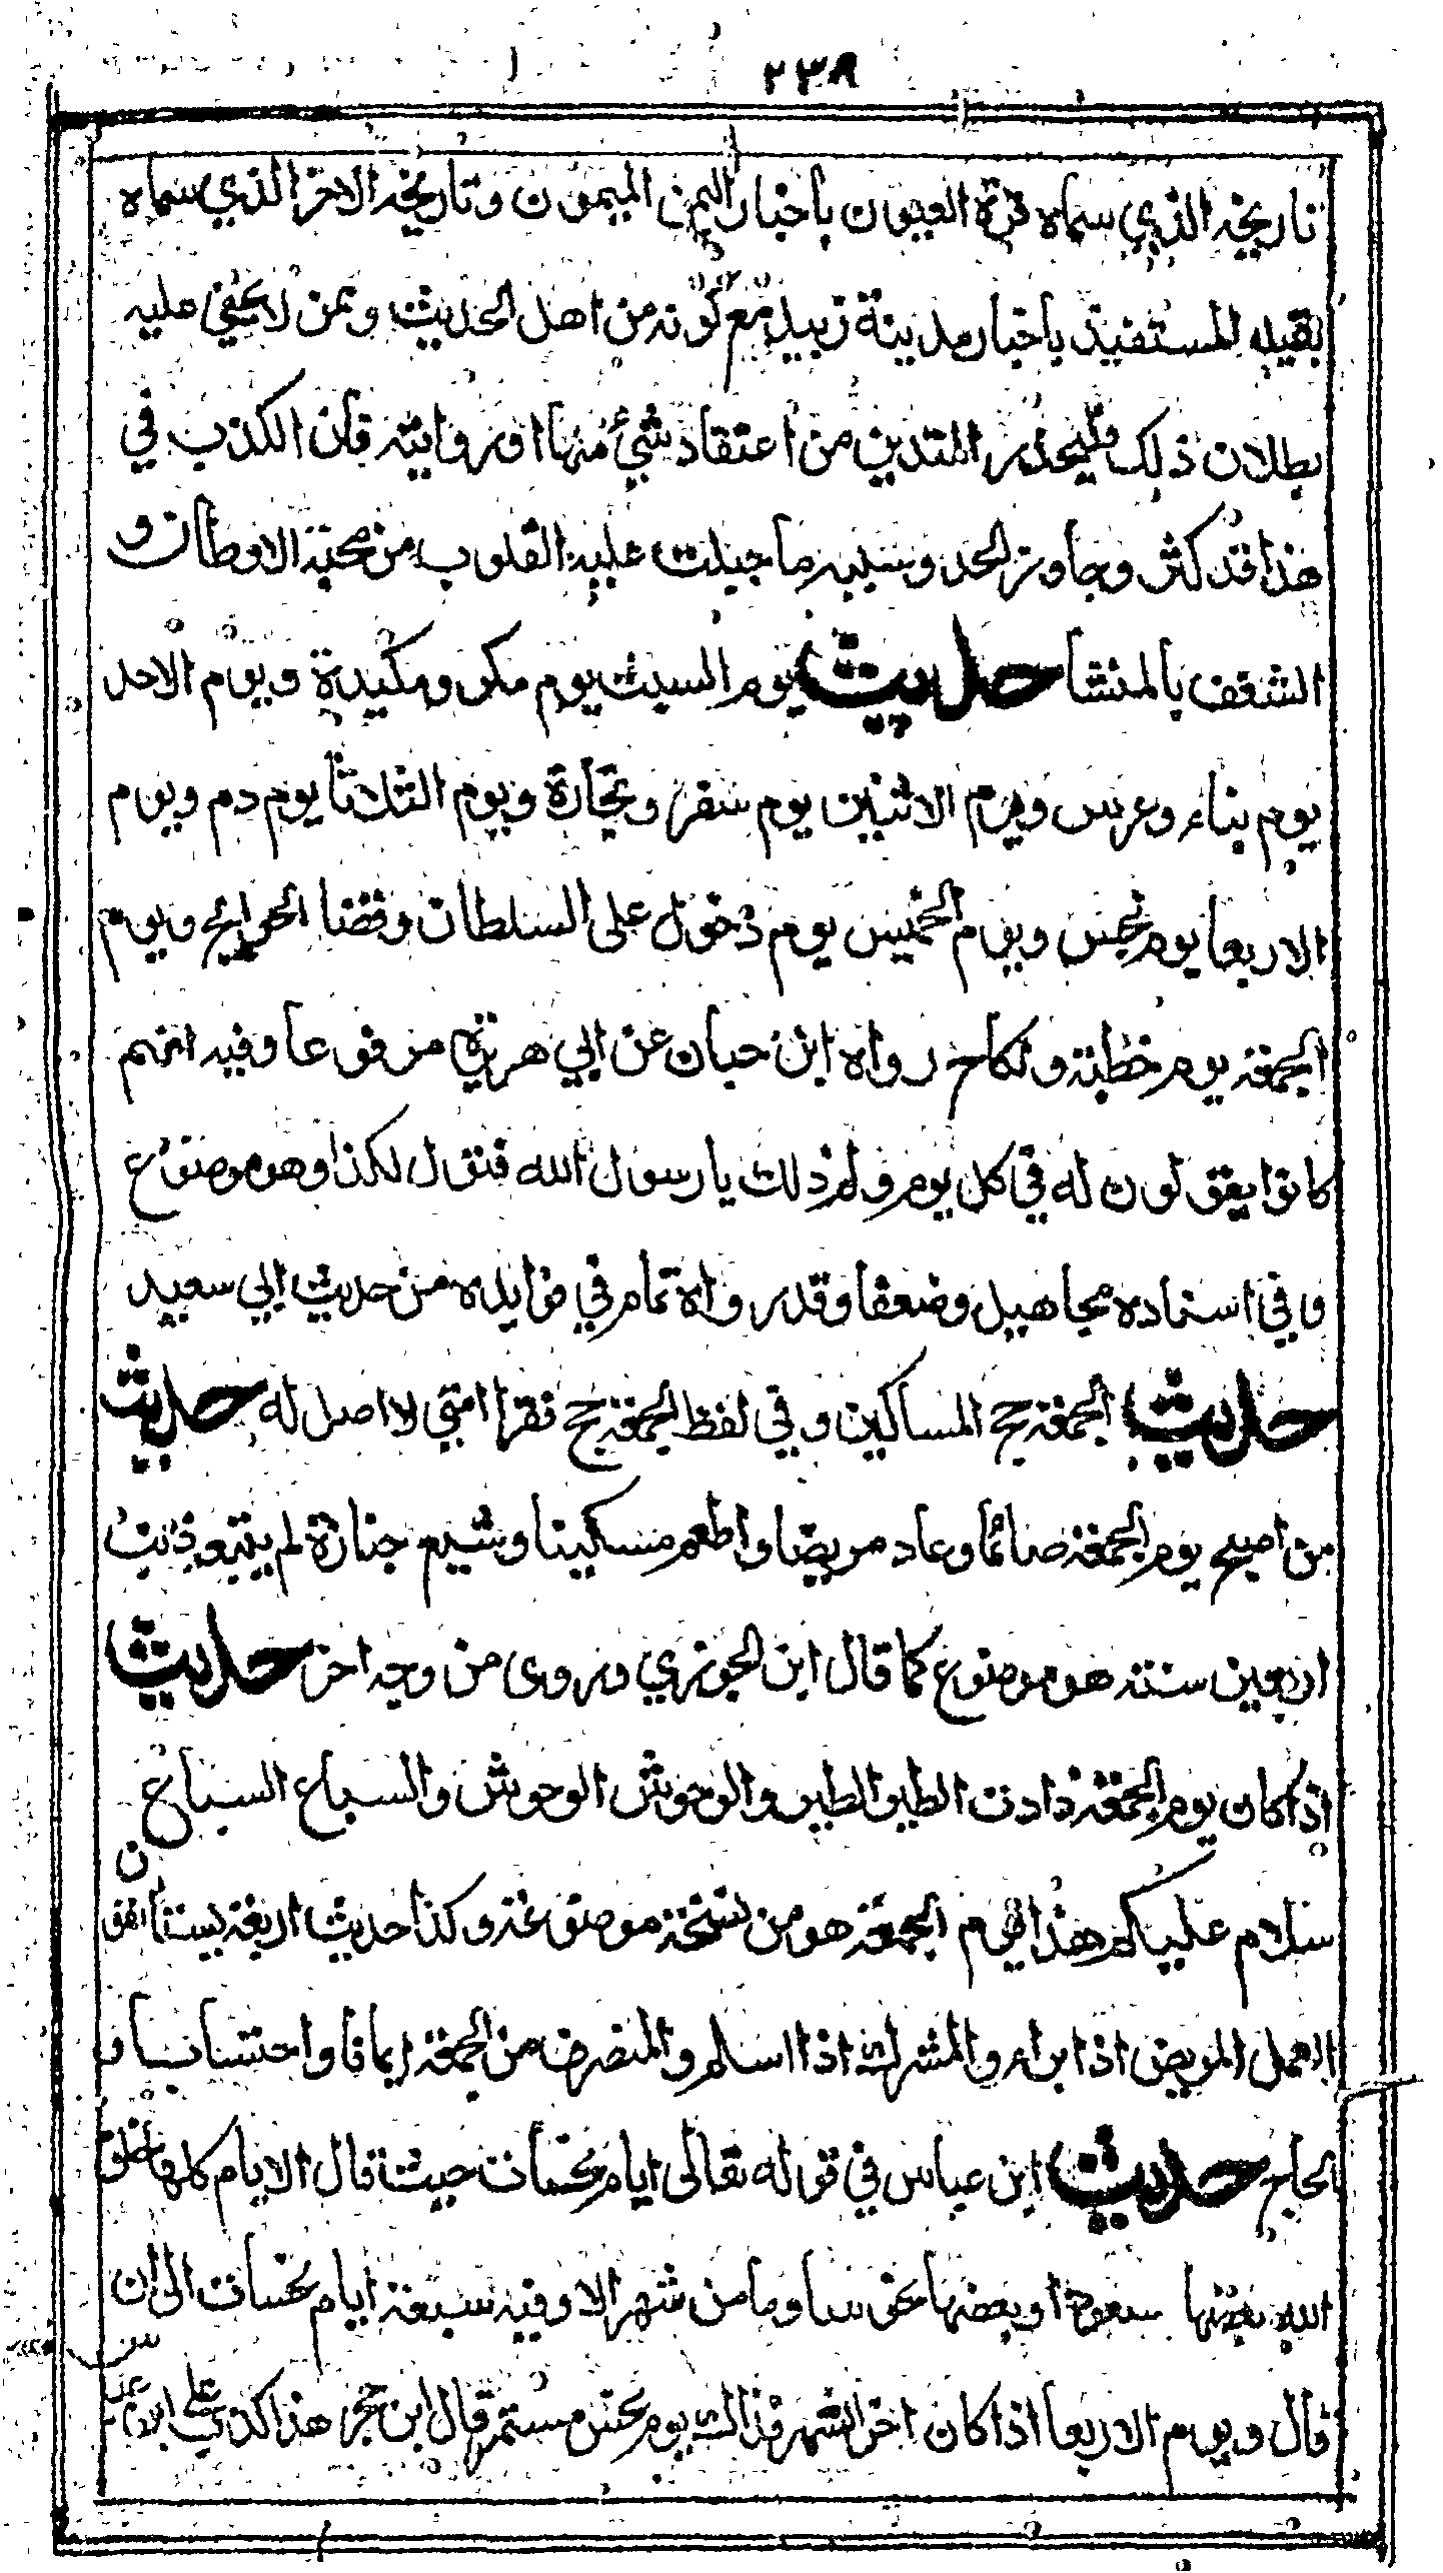 ٢٣٨
تاريخه الذي سماه قرة العيون باخبار اليمن الميمون وتاريخه الاخر الذي سماه
بغيه المستفيد باخبار مدينة زبيد مع كونه من اهل الحديث وممن لا يخفي عليه
بطلان ذلك فليحذر المتدين من اعتقاد شيء منها او روايته فان الكذب في
هذا قد كثر وجاوز الحد وسببه ما جبلت عليه القلوب من محبة الاوطان و
الشغف بالمنشا حديث يوم السبت يوم مكر ومكيدة ويوم الاحد
يوم بناء وعرس ويوم الاثنين يوم سفر وتجارة ويوم الثلاثا يوم دم ويوم
الاربعا يوم نحس ويوم الخميس يوم دخول على السلطان وقضا الحوايج ويوم
الجمعة يوم خطبة ونكاح رواه ابن حبان عن ابي هريرة مرفوعا وفيه انهم
كانوا يقولون له في كل يوم ولم ذلك يا رسول الله فيقول لكذا وهو موضوع
وفي اسناده مجاهيل وضعفا وقد رواه تمام في فوايده من حديث ابي سعيد
حديث الجمعة حج المساكين وفي لفظ الجمعة حج فقرا امتي لا اصل له حديث
من اصبح يوم الجمعة صائما وعاد مريضا واطعم مسكينا وشيع جنازة لم يتبعه ذنب
اربعين سنة هو موضوع كما قال ابن الجوزي وروى من وجه اخر حديث
اذا كان يوم الجمعة نادت الطير الطير والوحوش الوحوش والسباع السباع
سلام عليكم هذا يوم الجمعة هو من نسخة موضوعة وكذا حديث اربعة يستانفون
العمل المريض اذا برا والمشرك اذا اسلم والمنصرف من الجمعة ايمانا واحتسابا و
الحاج حديث ابن عباس في قوله تعالى ايام نحسات حيث قال الايام كلها خلق
الله بعضها سعودا وبعضها نحوسا وما من شهر الا وفيه سبعة ايام نحسات الى ان
قال ويوم الاربعا اذا كان اخر الشهر فذالك يوم نحس مستمر قال ابن حجر هذا كذب على ابن عباس